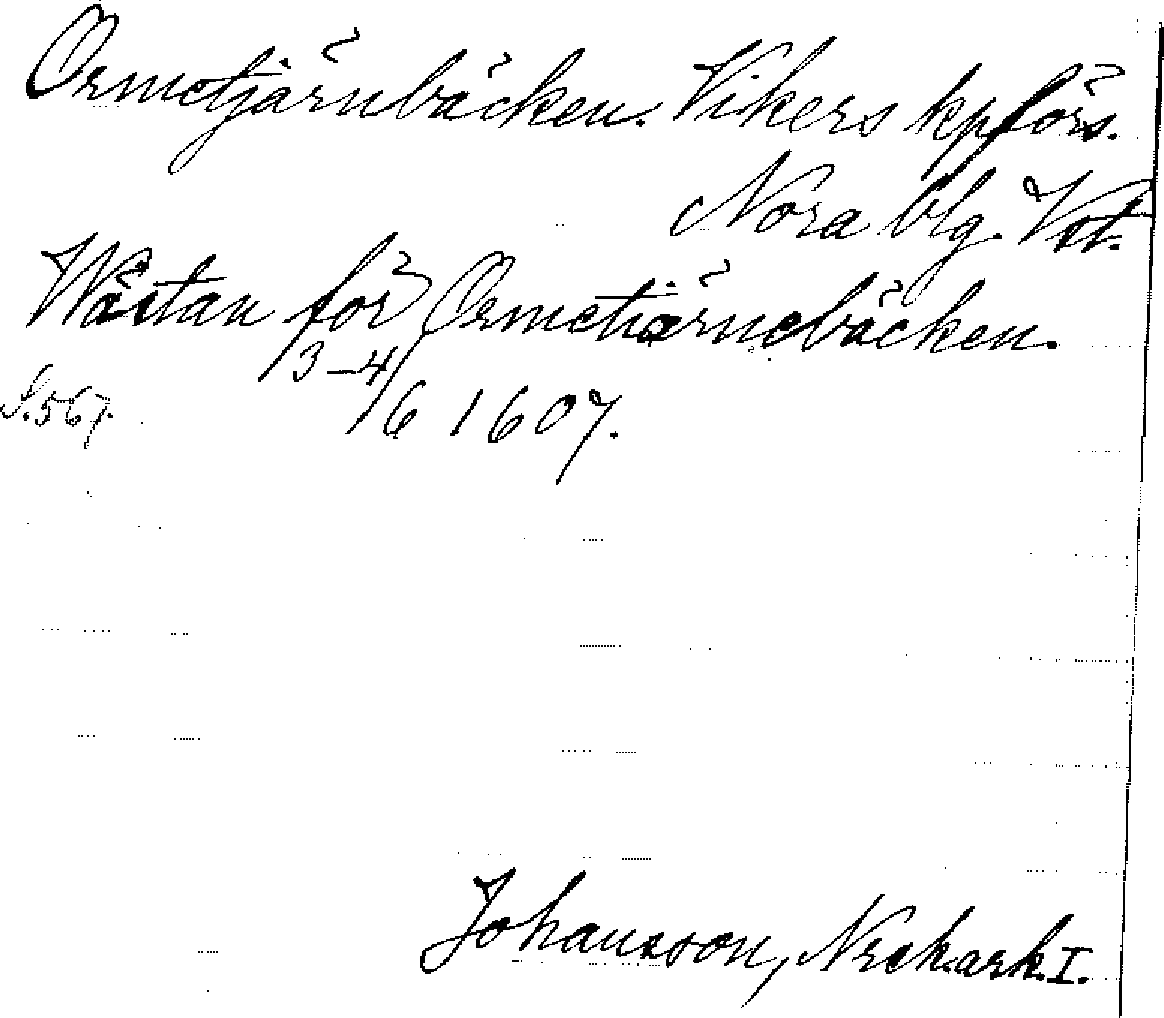 Ormetjärnbäcken. Vikers kpförs.
Nora blg. Vstm.
Wästan för Ormetiärnebäcken.
3-4/6 1607.
S. 567.
Johansson, Norakark. I.